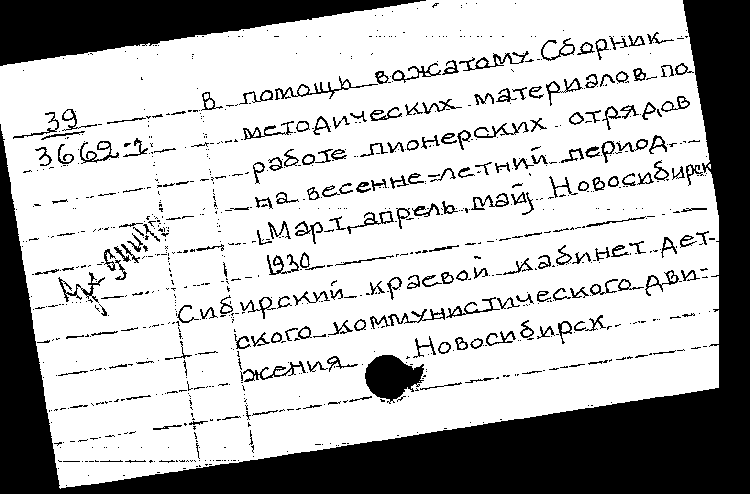 39
3662-1
В помощь вожатому. Сборник
методических материалов по
работе пионерских отрядов
на весенне-летний период.
[Март, апрель, май]. Новосибирск
1930
Сибирский краевой кабинет дет-
ского коммунистического дви-
жения. Новосибирск.